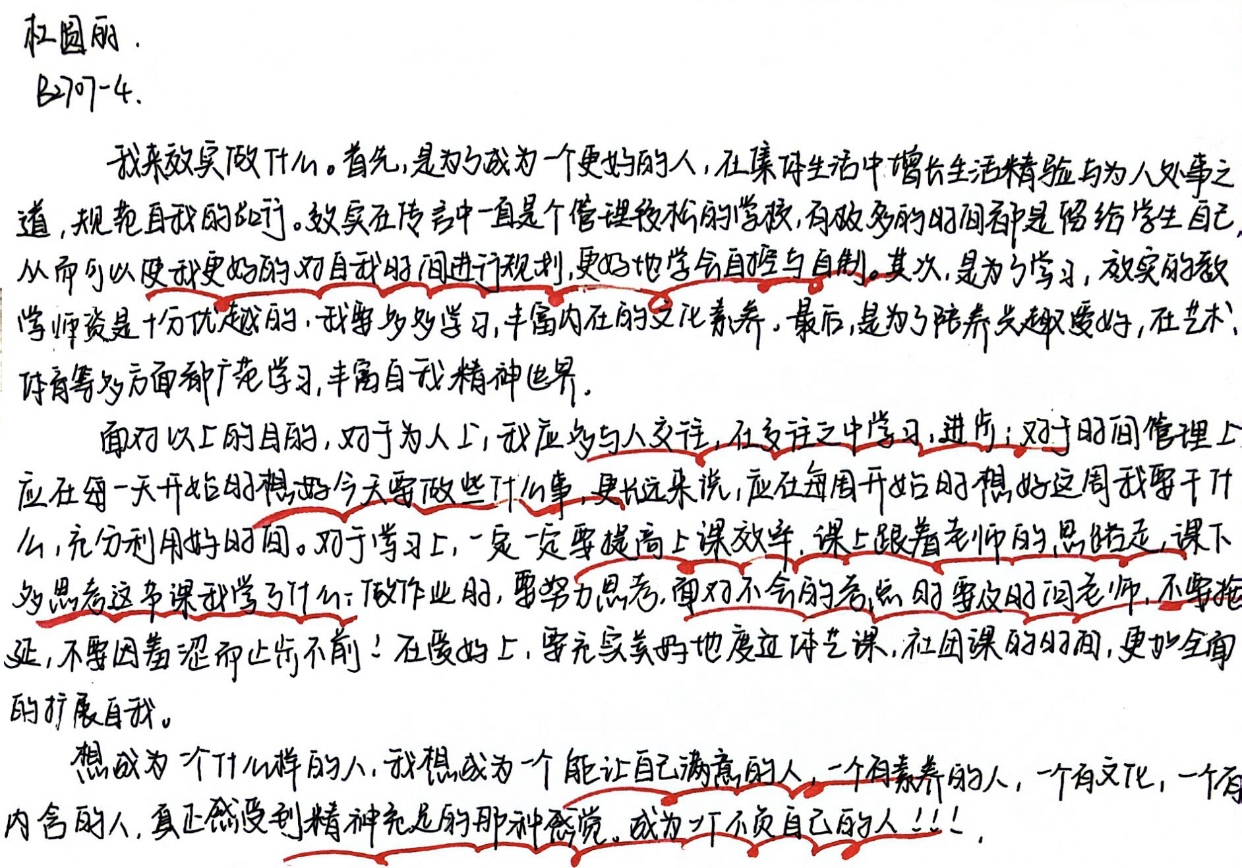 杜圆丽.
B2707-4.
我来效实做什么。首先,是为了成为一个更好的人,在集体生活中增长生活精验与为人处事之
道,规范自我的言行。效实在传言中一直是个管理较松的学校,有做多的时间都是留给学生自己,
从而可以使我更好的对自我时间进行规划,更好地学会自控与自制。其次,是为了学习,效实的教
学师资是十分优越的,我要多多学习,丰富内在的文化素养。最后,是为了陪养兴趣爱好,在艺术、
体育等多方面都广范学习,丰富自我精神世界。
面对以上的目的,对于为人上,我应多与人交往,在交往之中学习,进步;对于时间管理上
应在每一天开始时想好今天要做些什么事,更长远来说,应在每周开始时想好这周我要干什
么,充分利用好时间。对于学习上,一定一定要提高上课效率,课上跟着老师的思路走,课下
多思考这节课我学了什么;做作业时,要努力思考,面对不会的考点时要及时问老师,不要拖
延,不要因羞涩而止步不前!在爱好上,要充实美好地度过体艺课,社团课的时间,更加全面
的扩展自我。
想成为一个什么样的人,我想成为一个能让自己满意的人,一个有素养的人,一个有文化,一个有
内含的人,真正感受到精神充足的那种感觉。成为一个不负自己的人!!!.